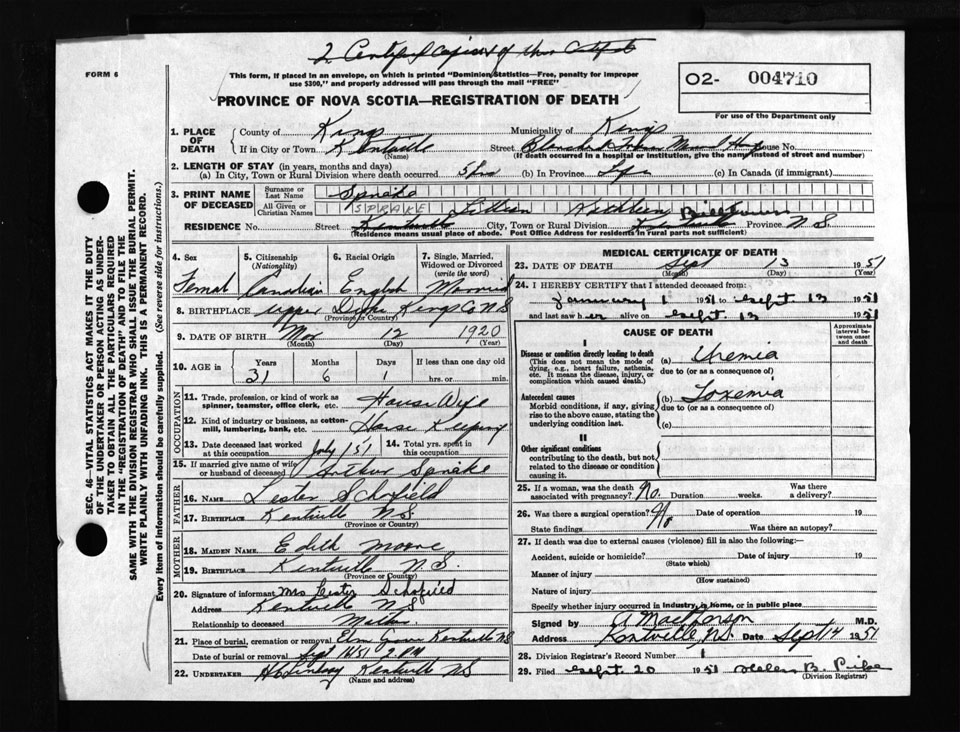 2 Certified copies of this Certfct
FORM 6
This form, if placed in an envelope, on which is printed "Dominion Statistics—Free, penalty for improper
use $300," and properly addressed will pass through the mail "FREE"
02- 004710
For use of the Department only
PROVINCE OF NOVA SCOTIA—REGISTRATION OF DEATH
1. PLACE OF DEATH
County of Kings Municipality of Kings
If in City or Town Kentville (Name) Street Blanchard Memorial Hosp House No.
(If death occurred in a hospital or institution, give the name instead of street and number)
2. LENGTH OF STAY (in years, months and days)
(a) In City, Town or Rural Division where death occurred 5 hrs (b) In Province Life (c) In Canada (if immigrant)
3. PRINT NAME OF DECEASED
Surname or Last Name Sprake
All Given or Christian Names SPRAKE Lillian Kathleen
RESIDENCE No. Street Kentville City, Town or Rural Division Kentville Billtown Province N.S.
(Residence means usual place of abode. Post Office Address for residents in rural parts not sufficient)
4. Sex Female
5. Citizenship (Nationality) Canadian
6. Racial Origin English
7. Single, Married, Widowed or Divorced (write the word) Married
8. BIRTHPLACE Upper Dyke Kings Co NS
(Province or Country)
9. DATE OF BIRTH Mar 12 1920
(Month) (Day) (Year)
10. AGE in Years 31 Months 6 Days 1 If less than one day old hrs. or min.
OCCUPATION
11. Trade, profession, or kind of work as spinner, teamster, office clerk, etc. House Wife
12. Kind of industry or business, as cotton-mill, lumbering, bank, etc. House Keeping
13. Date deceased last worked at this occupation July /51
14. Total yrs. spent in this occupation
15. If married give name of wife or husband of deceased Arthur Sprake
FATHER
16. NAME Lester Schofield
17. BIRTHPLACE Kentville NS
(Province or Country)
MOTHER
18. MAIDEN NAME Edith Moore
19. BIRTHPLACE Kentville N.S.
(Province or Country)
20. Signature of informant Mrs Lester Schofield
Address Kentville NS
Relationship to deceased Mother
21. Place of burial, cremation or removal Elm Grove Kentville NS
Date of burial or removal Sept 16/51 2 PM
22. UNDERTAKER Lindsay Kentville NS
(Name and address)
MEDICAL CERTIFICATE OF DEATH
23. DATE OF DEATH Sept 13 1951
(Month) (Day) (Year)
24. I HEREBY CERTIFY that I attended deceased from:
January 1 1951 to Sept. 13 1951
and last saw her alive on Sept. 13 1951
CAUSE OF DEATH
Approximate interval between onset and death
I
Disease or condition directly leading to death (a) Uremia
(This does not mean the mode of dying, e.g., heart failure, asthenia, etc. It means the disease, injury, or complication which caused death.)
due to (or as a consequence of)
Antecedent causes (b) Toxemia
Morbid conditions, if any, giving rise to the above cause, stating the underlying condition last.
due to (or as a consequence of)
(c)
II
Other significant conditions
contributing to the death, but not related to the disease or condition causing it.
25. If a woman, was the death associated with pregnancy? No. Duration weeks. Was there a delivery?
26. Was there a surgical operation? No Date of operation 19
State findings Was there an autopsy?
27. If death was due to external causes (violence) fill in also the following:—
Accident, suicide or homicide? Date of injury 19
(State which)
Manner of injury
(How sustained)
Nature of injury
Specify whether injury occurred in industry, in home, or in public place
Signed by A MacPherson M.D.
Address Kentville, N.S. Date Sept 14 1951
28. Division Registrar's Record Number 1
29. Filed Sept. 20 1951 Helen B. Pike
(Division Registrar)
SEC. 46—VITAL STATISTICS ACT MAKES IT THE DUTY
OF THE UNDERTAKER OR PERSON ACTING AS UNDER-
TAKER TO OBTAIN ALL THE PARTICULARS REQUIRED
IN THE "REGISTRATION OF DEATH" AND TO FILE THE
SAME WITH THE DIVISION REGISTRAR WHO SHALL ISSUE THE BURIAL PERMIT.
WRITE PLAINLY WITH UNFADING INK. THIS IS A PERMANENT RECORD.
Every item of information should be carefully supplied. (See reverse side for instructions.)